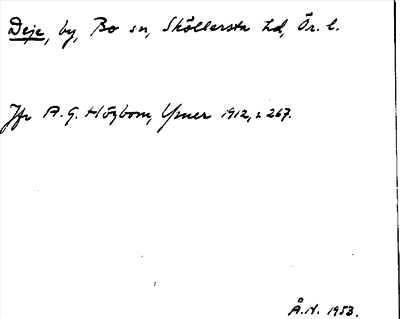 Deje, by, Bo sn, Sköllersta hd, Ör. l.
Jfr A.G. Högbom, Ymer 1912, s 267.
Å.N. 1953.